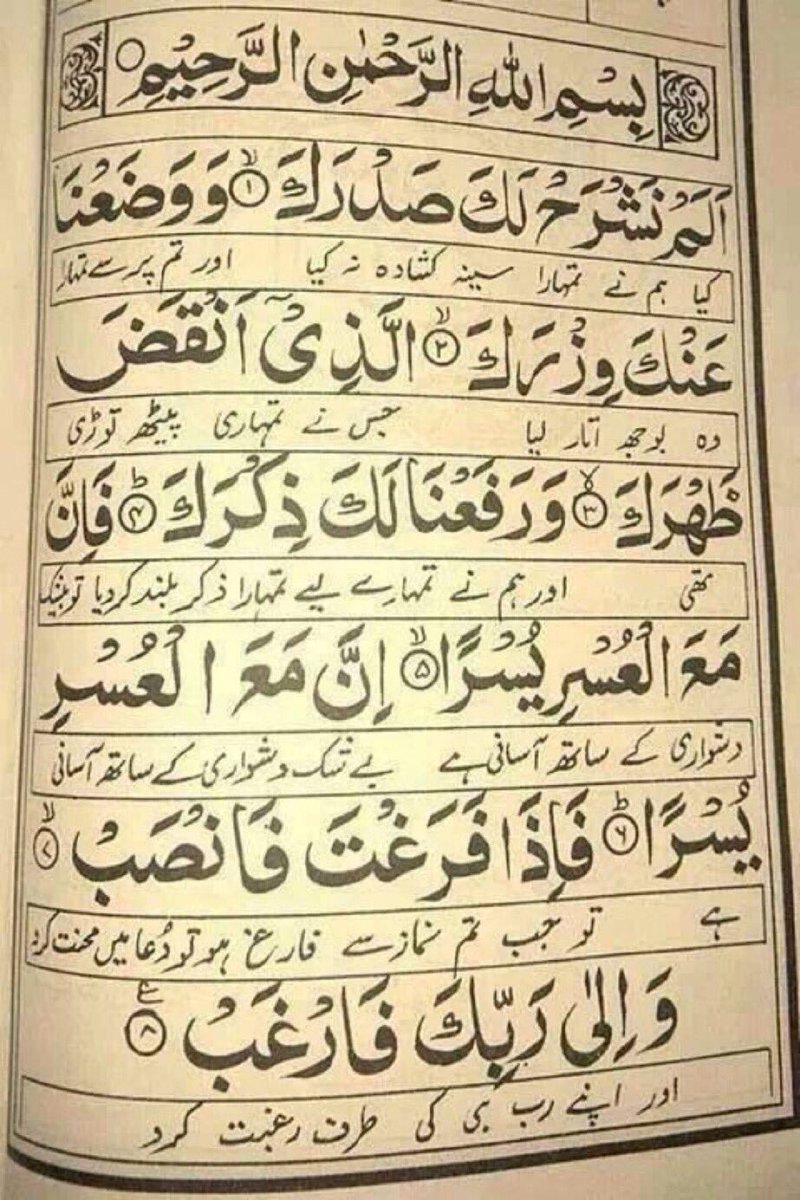 بِسْمِ اللهِ الرَّحْمٰنِ الرَّحِيْمِ ○
اَلَمْ نَشْرَحْ لَكَ صَدْرَكَ ۙ﴿۱﴾ وَوَضَعْنَا
کیا ہم نے تمہارا سینہ کشادہ نہ کیا اور تم پر سے تمہارا
عَنْكَ وِزْرَكَ ۙ﴿۲﴾ الَّذِیْۤ اَنْقَضَ
وہ بوجھ اتار لیا جس نے تمہاری پیٹھ توڑی
ظَهْرَكَ ۙ﴿۳﴾ وَرَفَعْنَا لَكَ ذِكْرَكَ ؕ﴿۴﴾ فَاِنَّ
تھی اور ہم نے تمہارے لیے تمہارا ذکر بلند کردیا تو بیشک
مَعَ الْعُسْرِ يُسْرًا ۙ﴿۵﴾ اِنَّ مَعَ الْعُسْرِ
دشواری کے ساتھ آسانی ہے بے شک دشواری کے ساتھ آسانی
يُسْرًا ؕ﴿۶﴾ فَاِذَا فَرَغْتَ فَانْصَبْ ۙ﴿۷﴾
ہے تو جب تم نماز سے فارغ ہو تو دُعا میں محنت کرو
وَ اِلٰى رَبِّكَ فَارْغَبْ ﴿۸﴾ ع
اور اپنے رب ہی کی طرف رغبت کرو